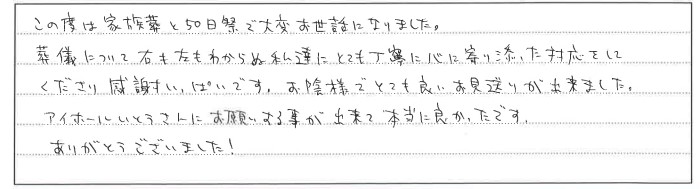 この度は家族葬と50日祭で大変お世話になりました。
葬儀について右も左もわからぬ私達にとても丁寧に心に寄り添った対応をして
くださり感謝すいっぱいです。お陰様でとても良いお見送りが出来ました。
アイホールいとうさんにお願いする事が出来て本当に良かったです。
ありがとうございました!